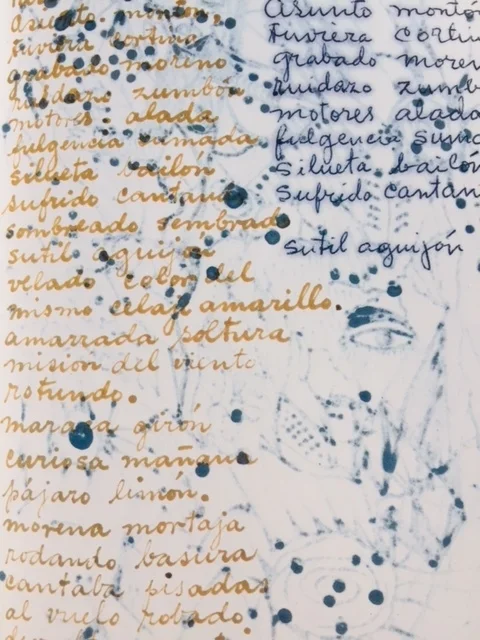 Asunto montón
tuviera cortina
grabado moreno
ruidazo zumbón
motores alada
fulgencia sumada
silueta bailón
sufrido cantando
sombreado sembrado
sutil aguijón
velado color del
mismo celaje amarillo.
amarrada soltura
mision del viento
rotundo.
maraca girón
curiosa mañana
pájaro limón.
morena mortaja
rodando basura
cantaba pisadas
al vuelo robado
Asunto montón
tuviera cortin
grabado moren
ruidazo zumb
motores alada
fulgencia suma
Silueta bailón
Sufrido cantan
sutil aguijón